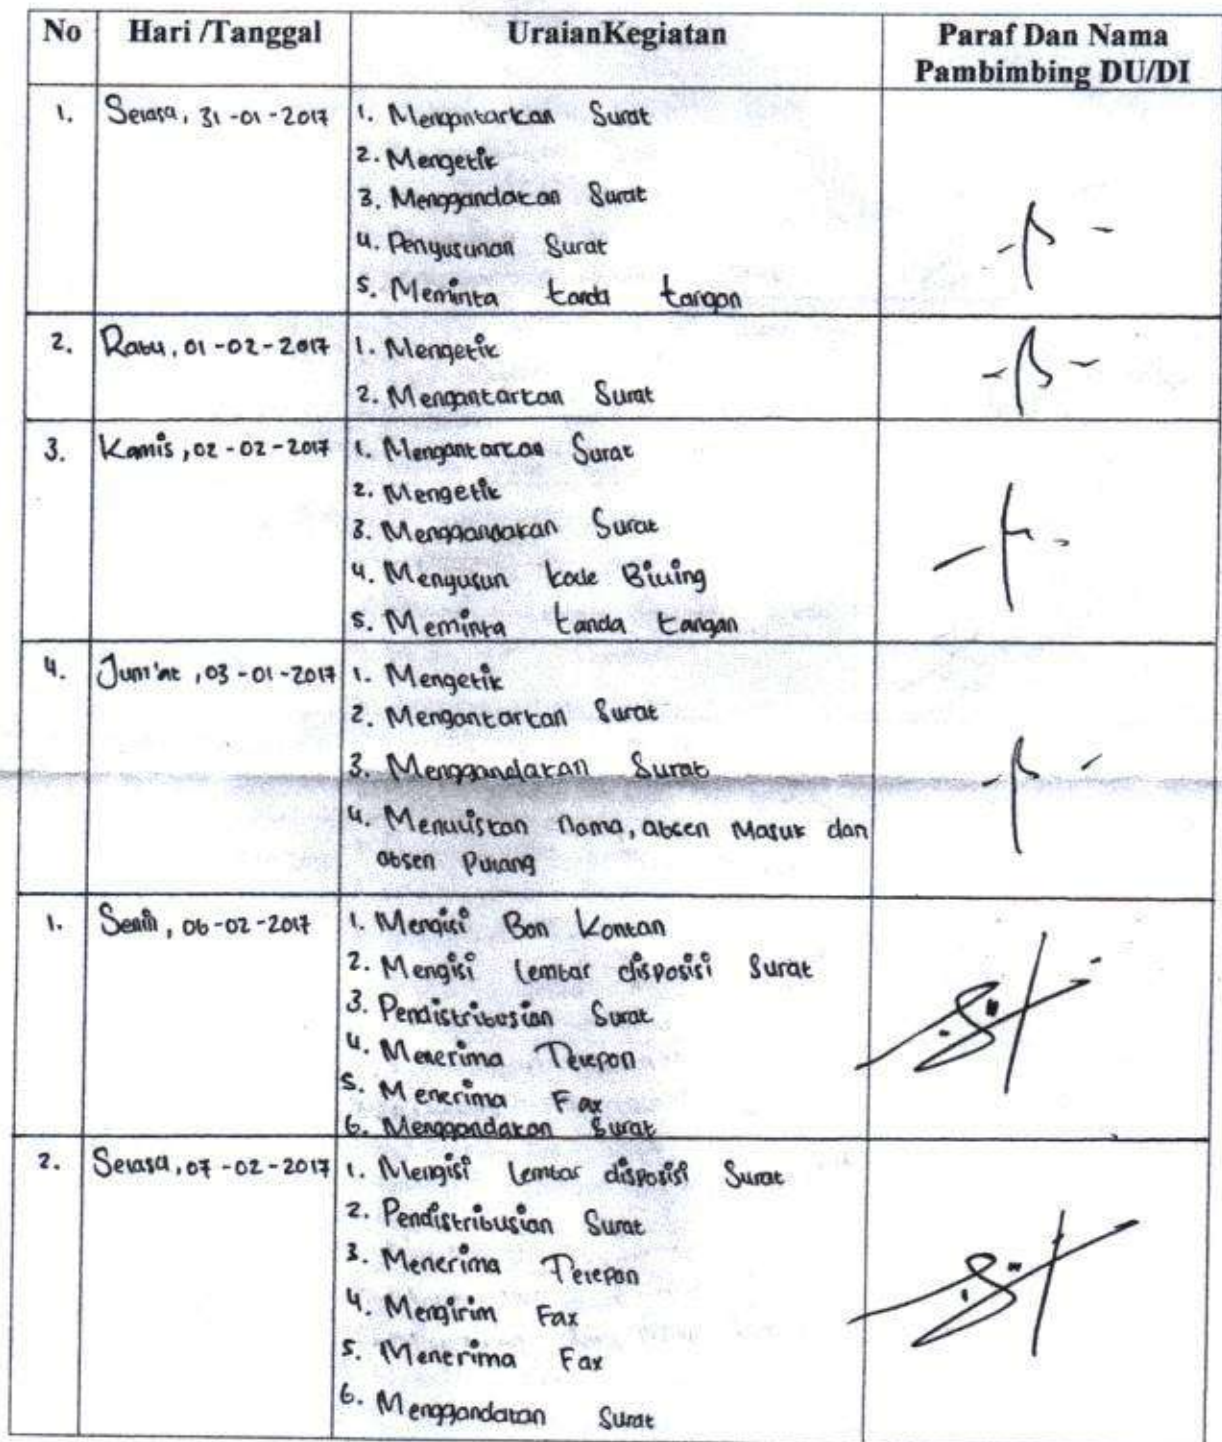 No Hari /Tanggal UraianKegiatan Paraf Dan Nama
Pambimbing DU/DI
1. Selasa, 31-01-2017 1. Mengantarkan Surat
2. Mengetik
3. Menggandakan Surat
4. Penyusunan Surat
5. Meminta tanda tangan
2. Rabu, 01-02-2017 1. Mengetik
2. Mengantarkan Surat
3. Kamis, 02-02-2017 1. Mengantarkan Surat
2. Mengetik
3. Menggandakan Surat
4. Menyusun kode Billing
5. Meminta tanda tangan
4. Jum'at, 03-01-2017 1. Mengetik
2. Mengantarkan Surat
3. Menggandakan Surat
4. Menuliskan Nama, absen Masuk dan
absen Pulang
1. Senin, 06-02-2017 1. Mengisi Bon Kontan
2. Mengisi lembar disposisi Surat
3. Pendistribusian Surat
4. Menerima Telepon
5. Menerima Fax
6. Menggandakan Surat
2. Selasa, 07-02-2017 1. Mengisi lembar disposisi Surat
2. Pendistribusian Surat
3. Menerima Telepon
4. Mengirim Fax
5. Menerima Fax
6. Menggandakan Surat